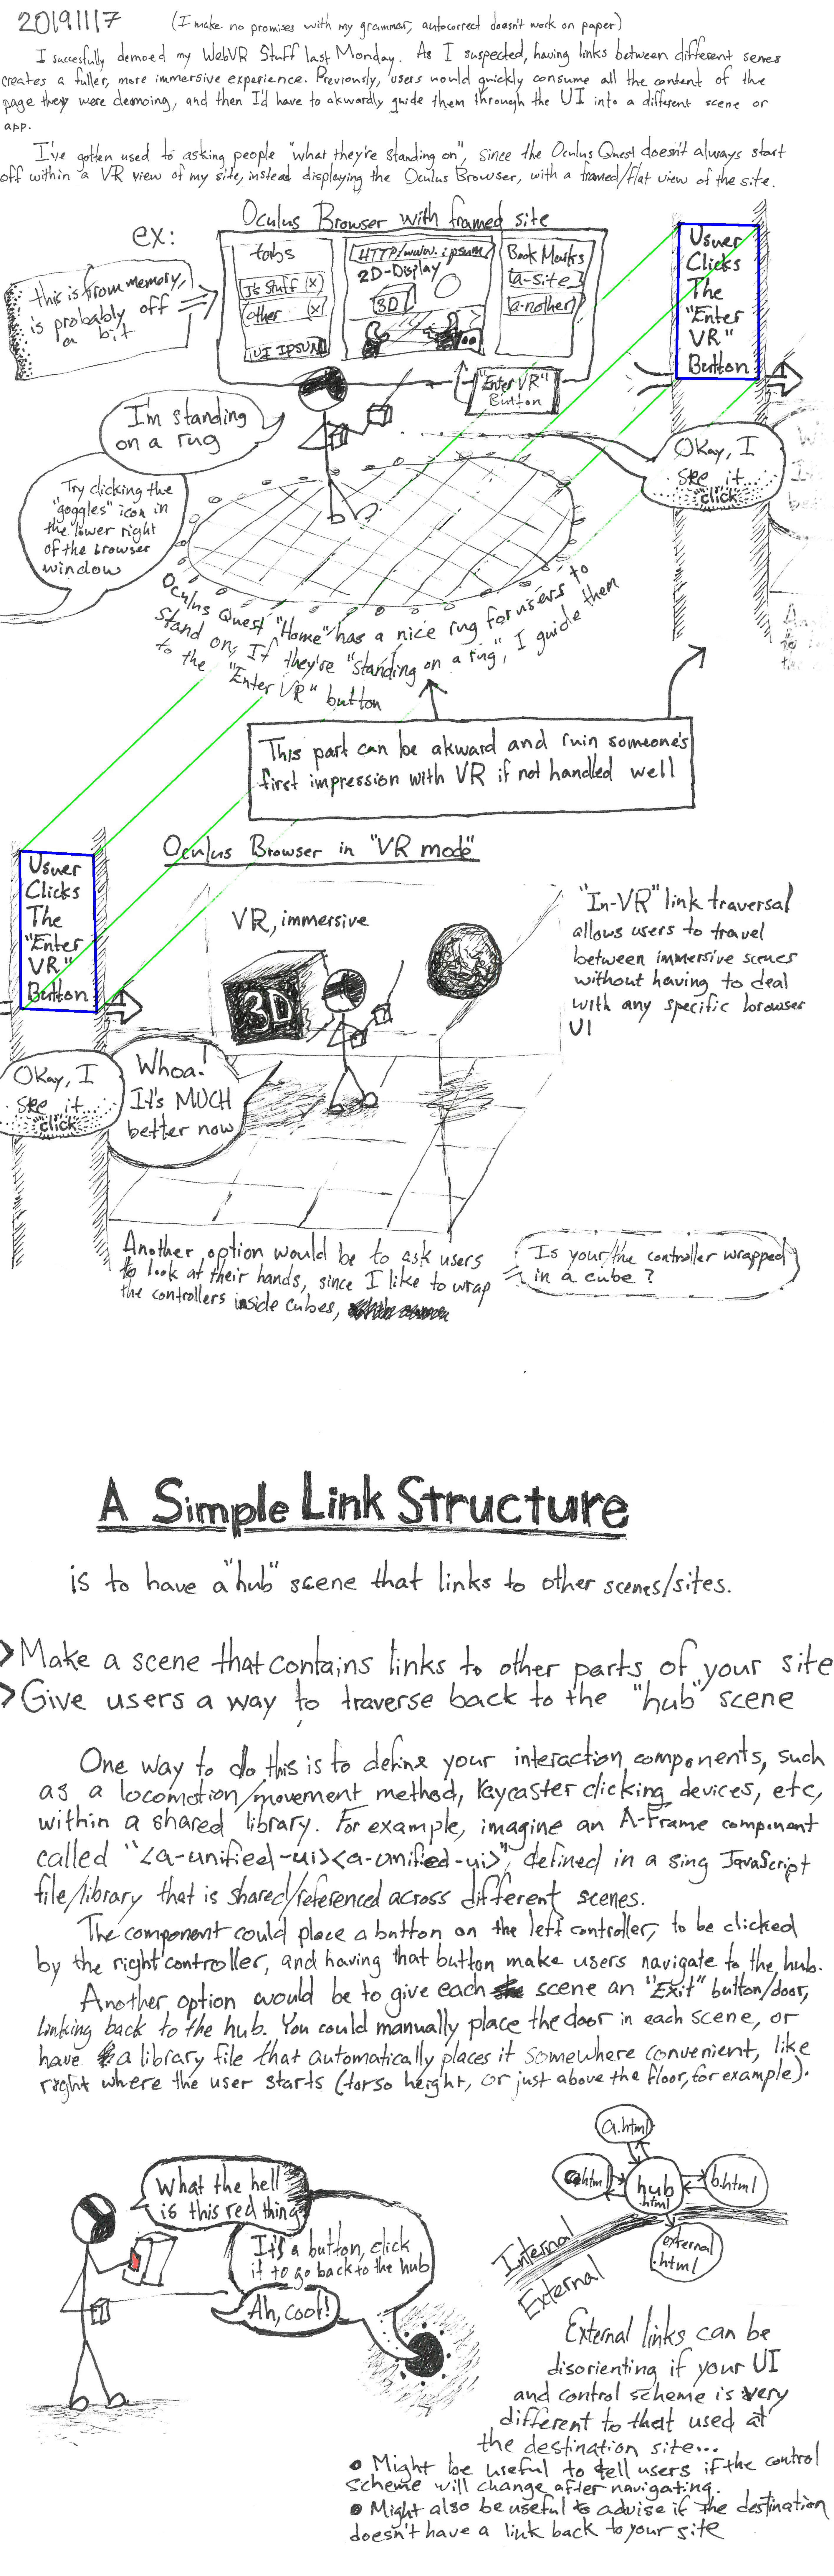 20191117 (I make no promises with my grammar, autocorrect doesn't work on paper)
I succesfully demoed my WebVR Stuff last Monday. As I suspected, having links between different scenes
creates a fuller, more immersive experience. Previously, users would quickly consume all the content of the
page they were demoing, and then I'd have to akwardly guide them through the UI into a different scene or
app.
I've gotten used to asking people "what they're standing on", since the Oculus Quest doesn't always start
off within a VR view of my site, instead displaying the Oculus Browser, with a framed/flat view of the site.
ex:
Oculus Browser with framed site
this is from memory,
is probably off
a bit
tabs
Js Stuff (x)
other (x)
UI IPSUM
HTTP/www.ipsum
2D-Display
3D
Book Marks
(a-site)
(a-nother)
"Enter VR"
Button
I'm standing
on a rug
Try clicking the
"goggles" icon in
the lower right
of the browser
window
Usuer
Clicks
The
"Enter
VR"
Button
Okay, I
see it
click
Oculus Quest "Home" has a nice rug for users to
stand on, If they're "standing on a rug", I guide them
to the "Enter VR" button
This part can be akward and ruin someone's
first impression with VR if not handled well
Oculus Browser in "VR mode"
Usuer
Clicks
The
"Enter
VR"
Button
VR, immersive
3D
"In-VR" link traversal
allows users to travel
between immersive scenes
without having to deal
with any specific borowser
UI
Okay, I
see it
click
Whoa!
It's MUCH
better now
Another option would be to ask users
to look at their hands, since I like to wrap
the controllers inside cubes,
Is your/the controller wrapped
in a cube?
A Simple Link Structure
is to have a "hub" scene that links to other scenes/sites.
>Make a scene that contains links to other parts of your site
>Give users a way to traverse back to the "hub" scene
One way to do this is to define your interaction components, such
as a locomotion/movement method, raycaster clicking devices, etc,
within a shared library. For example, imagine an A-Frame component
called "<a-unified-ui><a-unified-ui>", defined in a sing JavaScript
file/library that is shared/referenced across different scenes.
The component could place a button on the left controller, to be clicked
by the right controller, and having that button make users navigate to the hub.
Another option would be to give each scene an "Exit" button/door,
linking back to the hub. You could manually place the door in each scene, or
have a library file that automatically places it somewhere convenient, like
right where the user starts (torso height, or just above the floor, for example).
What the hell
is this red thing
It's a button, click
it to go back to the hub
Ah, cool!
a.html
hub
.html
b.html
external
.html
Internal
External
External links can be
disorienting if your UI
and control scheme is very
different to that used at
the destination site...
• Might be useful to tell users if the control
scheme will change after navigating.
• Might also be useful to advise if the destination
doesn't have a link back to your site